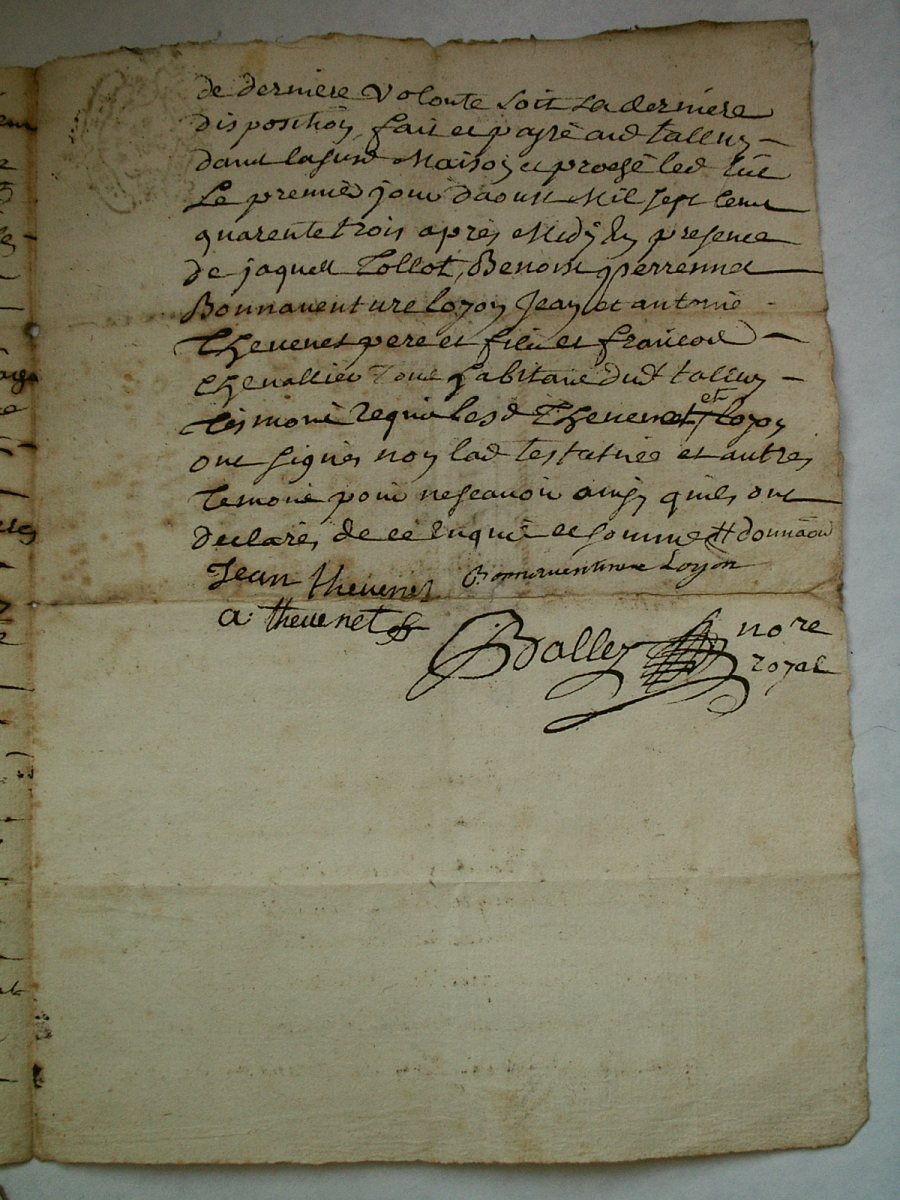 de derniere volonte soit sa derniere
disposition, fait et passé aud talluy
dans la susd maison
Le premier jour daoust mil sept cent
quarente trois apres midy en presence
de jaques Tollot, Benoist perrenne
Bonnaventure loyon Jean et antoine
Thevenet pere et fils et francois
chevallier tous habitans dud talluy
tesmoins requis lesd Thevenet et loyon
ont signes non lad testatrice et autres
tesmoins pour ne scavoir ainsy quils ont
declarés de ce enquis et sommes
Jean thevenet Bonnaventure Loyon
a: thevenet
Dalley nore
royal